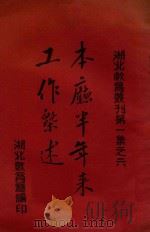 湖北教育叢刊第一集之六
本廳半年来
工作槩述
湖北教育廳編印